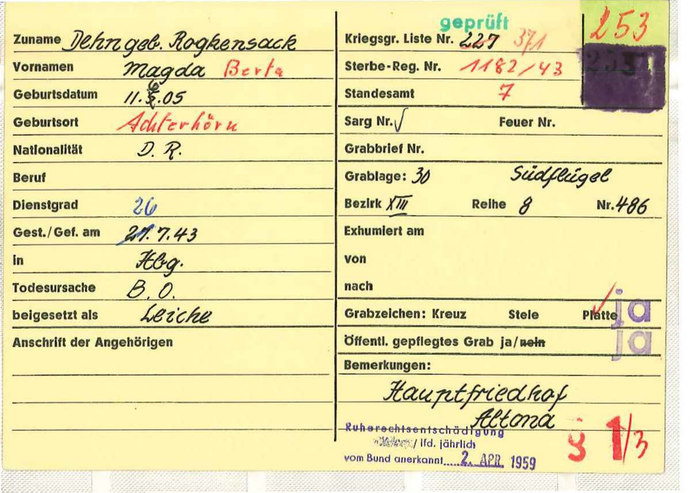 geprüft
253
Zuname Dehn geb. Roghensack
Vornamen Magda Berta
Geburtsdatum 11.6.05
Geburtsort Achterhörn
Nationalität D. R.
Beruf
Dienstgrad 26
Gest./Gef. am 27.7.43
in Hbg.
Todesursache B. O.
beigesetzt als Leiche
Anschrift der Angehörigen
Kriegsgr. Liste Nr. 227 371
Sterbe-Reg. Nr. 1182/43
Standesamt 7
Sarg Nr. √ Feuer Nr.
Grabbrief Nr.
Grablage: 30 Südflügel
Bezirk XIII Reihe 8 Nr. 486
Exhumiert am
von
nach
Grabzeichen: Kreuz Stele Platte ja
Öffentl. gepflegtes Grab ja/nein ja
Bemerkungen:
Hauptfriedhof
Altona
Ruherechtsentschädigung
/ lfd. jährlich
vom Bund anerkannt 2. APR. 1959
§ 1/3